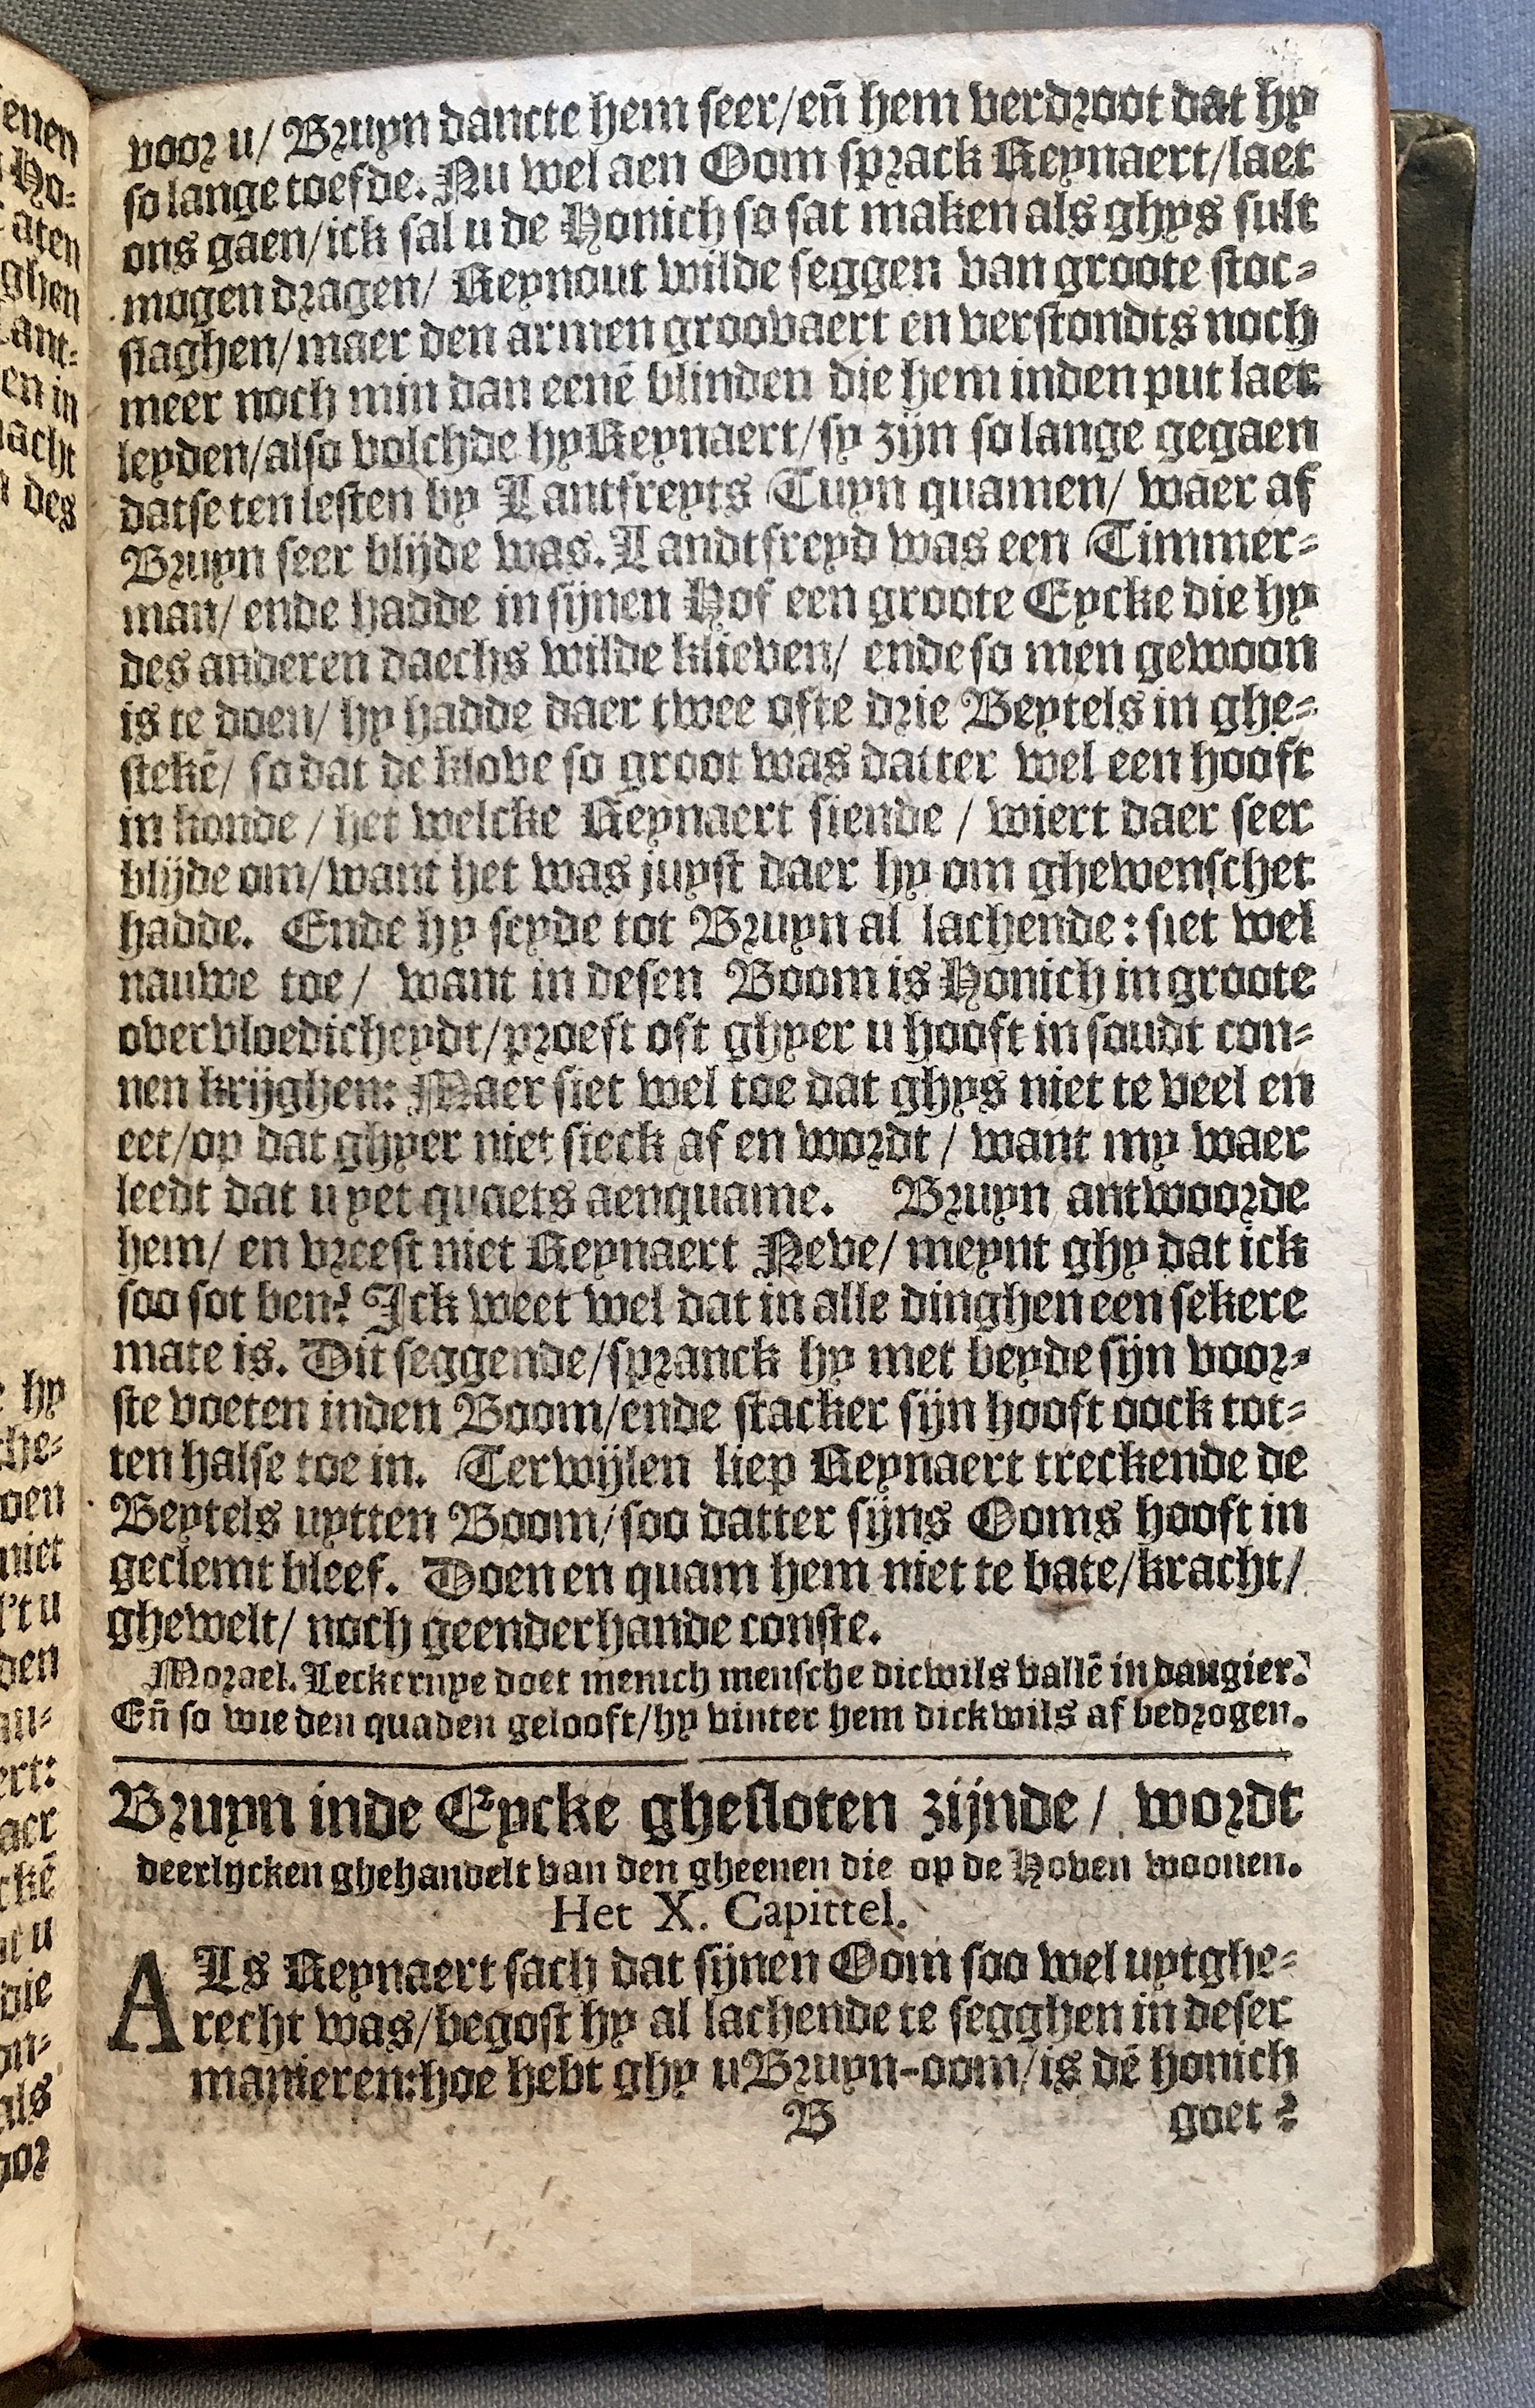 voor u/ Bruyn dancte hem seer/en̄ hem verdroot dat hy
so lange toefde. Nu wel aen Oom sprack Reynaert/laet
ons gaen/ick sal u de Honich so sat maken als ghys sult
mogen dragen/ Reynout wilde seggen van groote stoc-
slaghen/maer den armen groovaert en verstondts noch
meer noch min dan eenē blinden die hem inden put laet
leyden/also volchde hy Reynaert/sy zijn so lange gegaen
datse ten lesten by Lantfreyts Tuyn quamen/ waer af
Bruyn seer blijde was. Landtfreyd was een Timmer-
man/ ende hadde in sijnen Hof een groote Eycke die hy
des anderen daechs wilde klieven/ ende so men gewoon
is te doen/ hy hadde daer twee ofte drie Beytels in ghe-
stekē/ so dat de klove so groot was datter wel een hooft
in konde / het welcke Reynaert siende / wiert daer seer
blijde om/want het was juyst daer hy om ghewenschet
hadde. Ende hy seyde tot Bruyn al lachende: siet wel
nauwe toe/ want in desen Boom is Honich in groote
overvloedicheydt/proeft oft ghyer u hooft in soudt con-
nen krijghen: Maer siet wel toe dat ghys niet te veel en
eet/op dat ghyer niet sieck af en wordt / want my waer
leedt dat u yet quaets aenquame. Bruyn antwoorde
hem/ en vreest niet Reynaert Neve/ meynt ghy dat ick
soo sot ben? Ick weet wel dat in alle dinghen een sekere
mate is. Dit seggende/spranck hy met beyde sijn voor-
ste voeten inden Boom/ende stacker sijn hooft oock tot-
ten halse toe in. Terwijlen liep Reynaert treckende de
Beytels uytten Boom/soo datter sijns Ooms hooft in
geclemt bleef. Doen en quam hem niet te bate/kracht/
ghewelt/ noch geenderhande conste.
Morael. Leckernye doet menich mensche dicwils vallē in dangier.
En̄ so wie den quaden gelooft/hy vinter hem dickwils af bedrogen.
Bruyn inde Eycke ghesloten zijnde / wordt
deerlycken ghehandelt van den gheenen die op de Hoven woonen.
Het X. Capittel.
ALs Reynaert sach dat sijnen Oom soo wel uytghe-
recht was/begost hy al lachende te segghen in deser
manieren:hoe hebt ghy u Bruyn-oom/is dē honich
B goet?
enen
Ho-
aten
ghen
ant-
en in
acht
des
hy
che-
oen
niet
l't u
den
ert:
aer
ckē
u
die
on-
als
oor